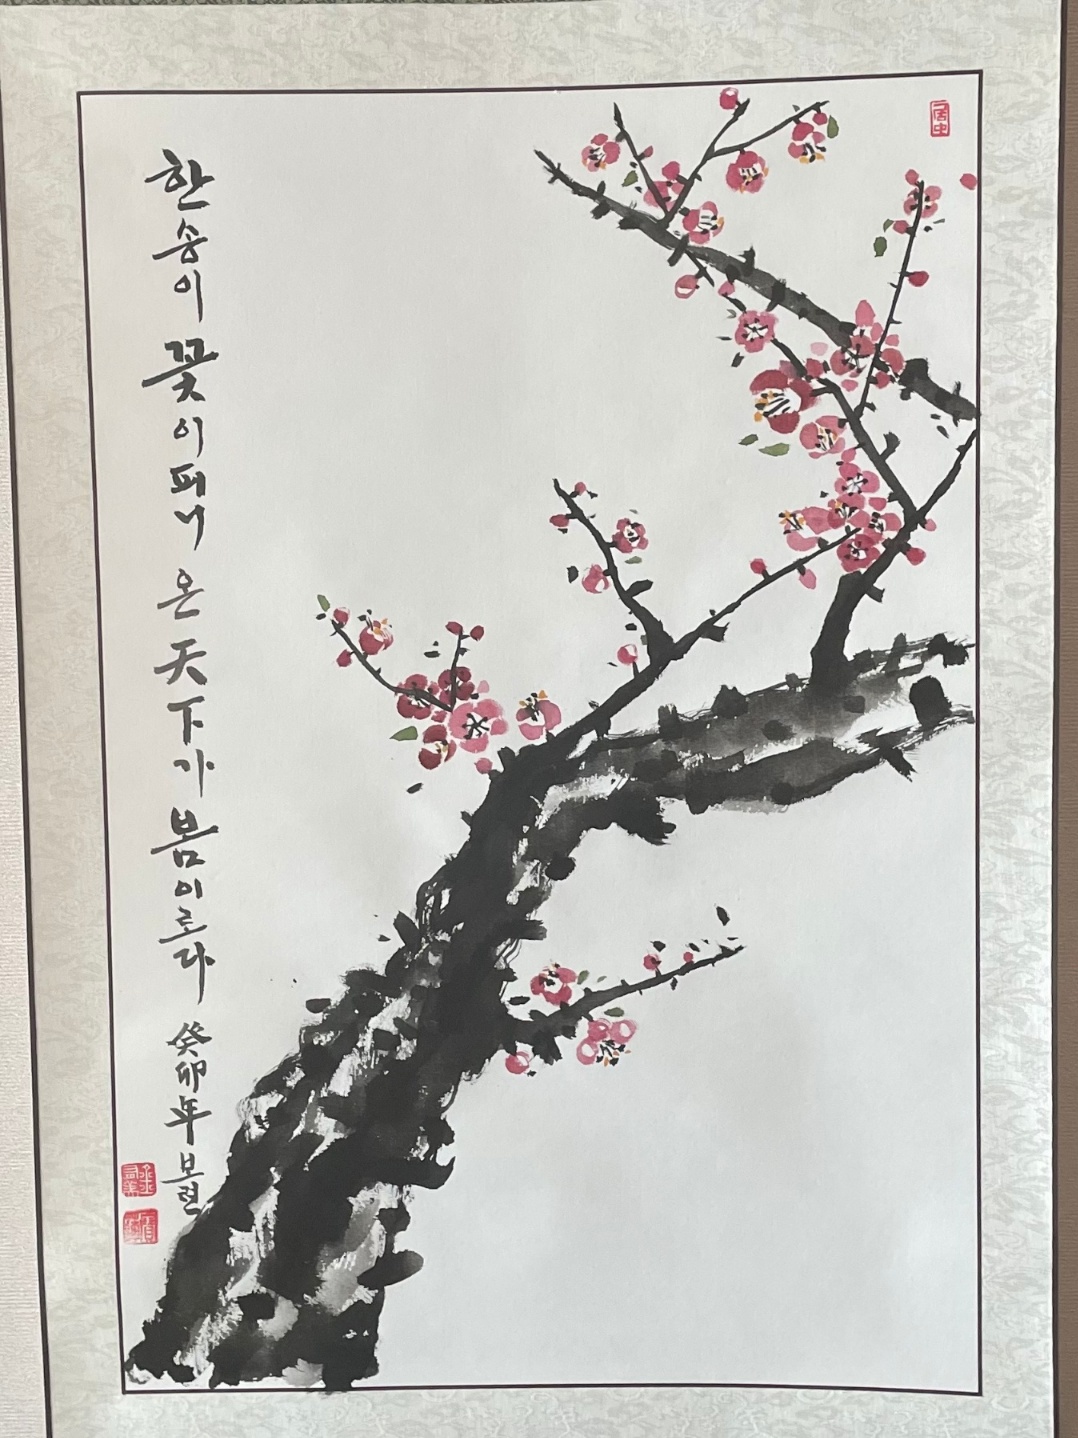 한 송이 꽃이 피니 온 天下가 봄이로다 癸卯年 보련